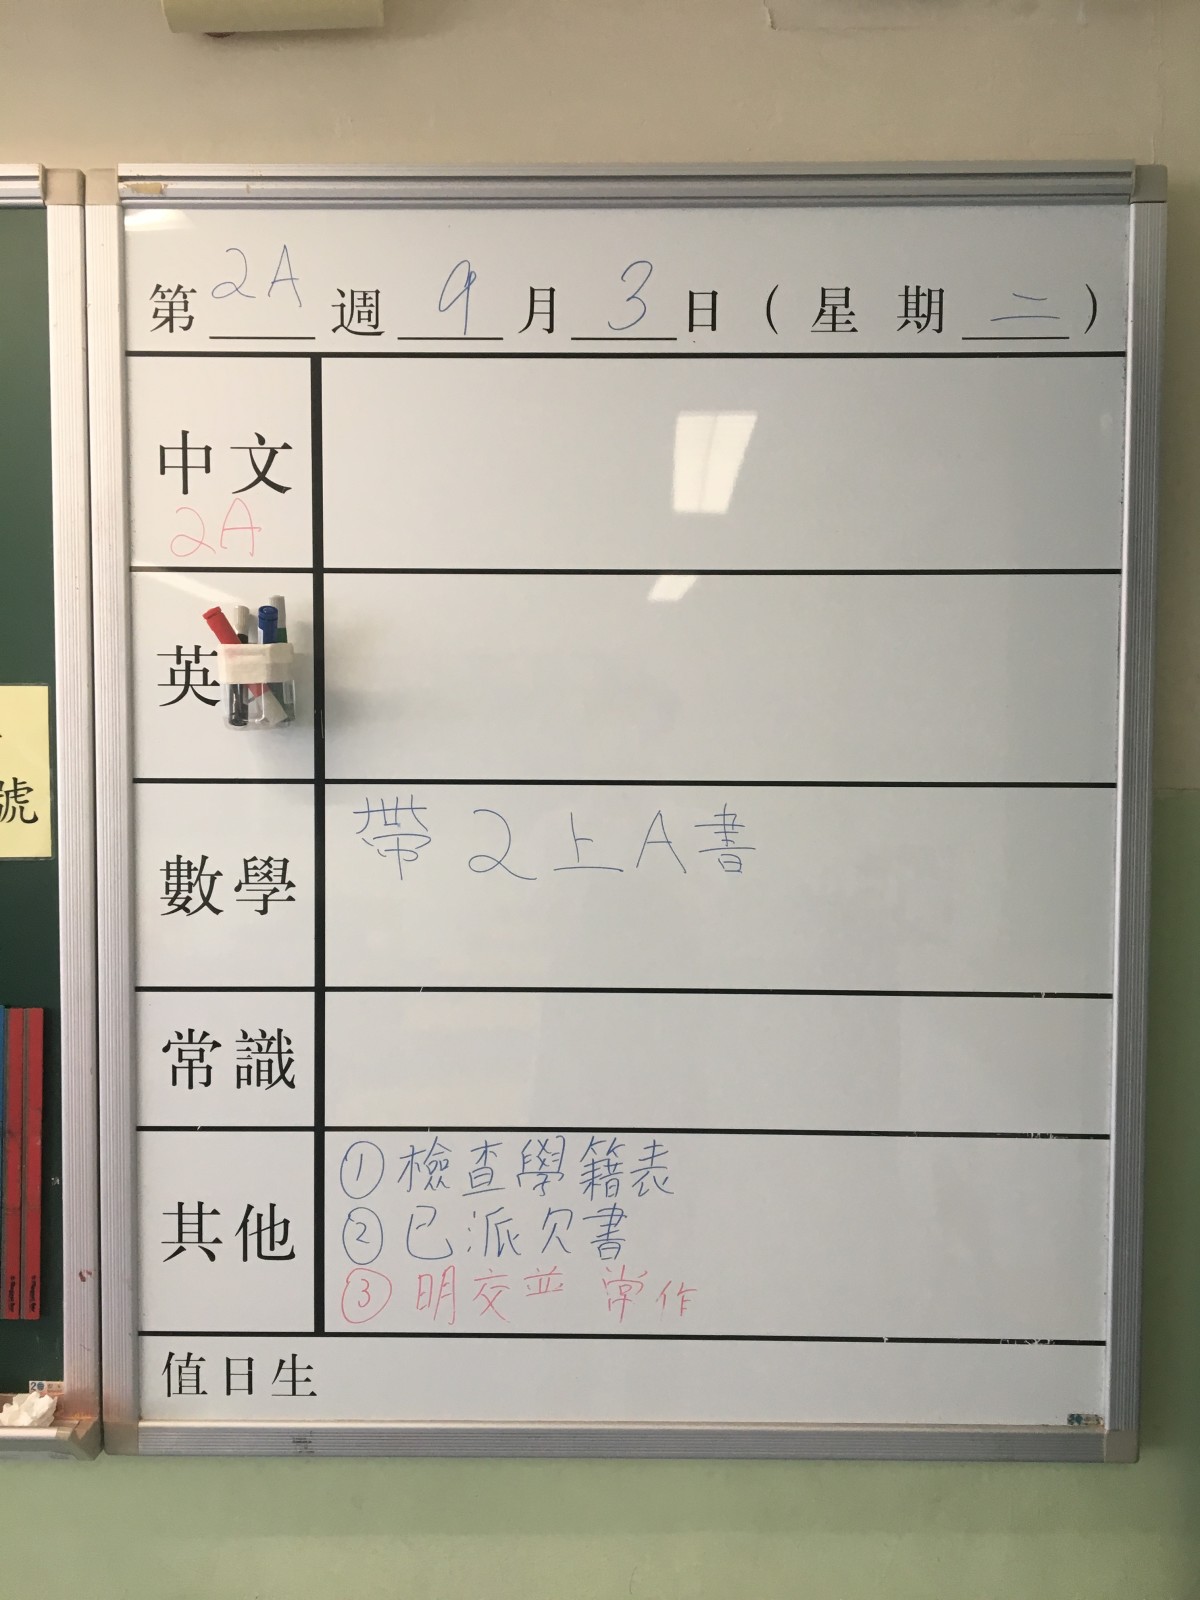 第 2A 週 9 月 3 日 ( 星期 二 )
中文
2A
英
數學 帶 2上A書
常識
其他 ① 檢查學籍表
② 已派欠書
③ 明交並 常作
值日生
號